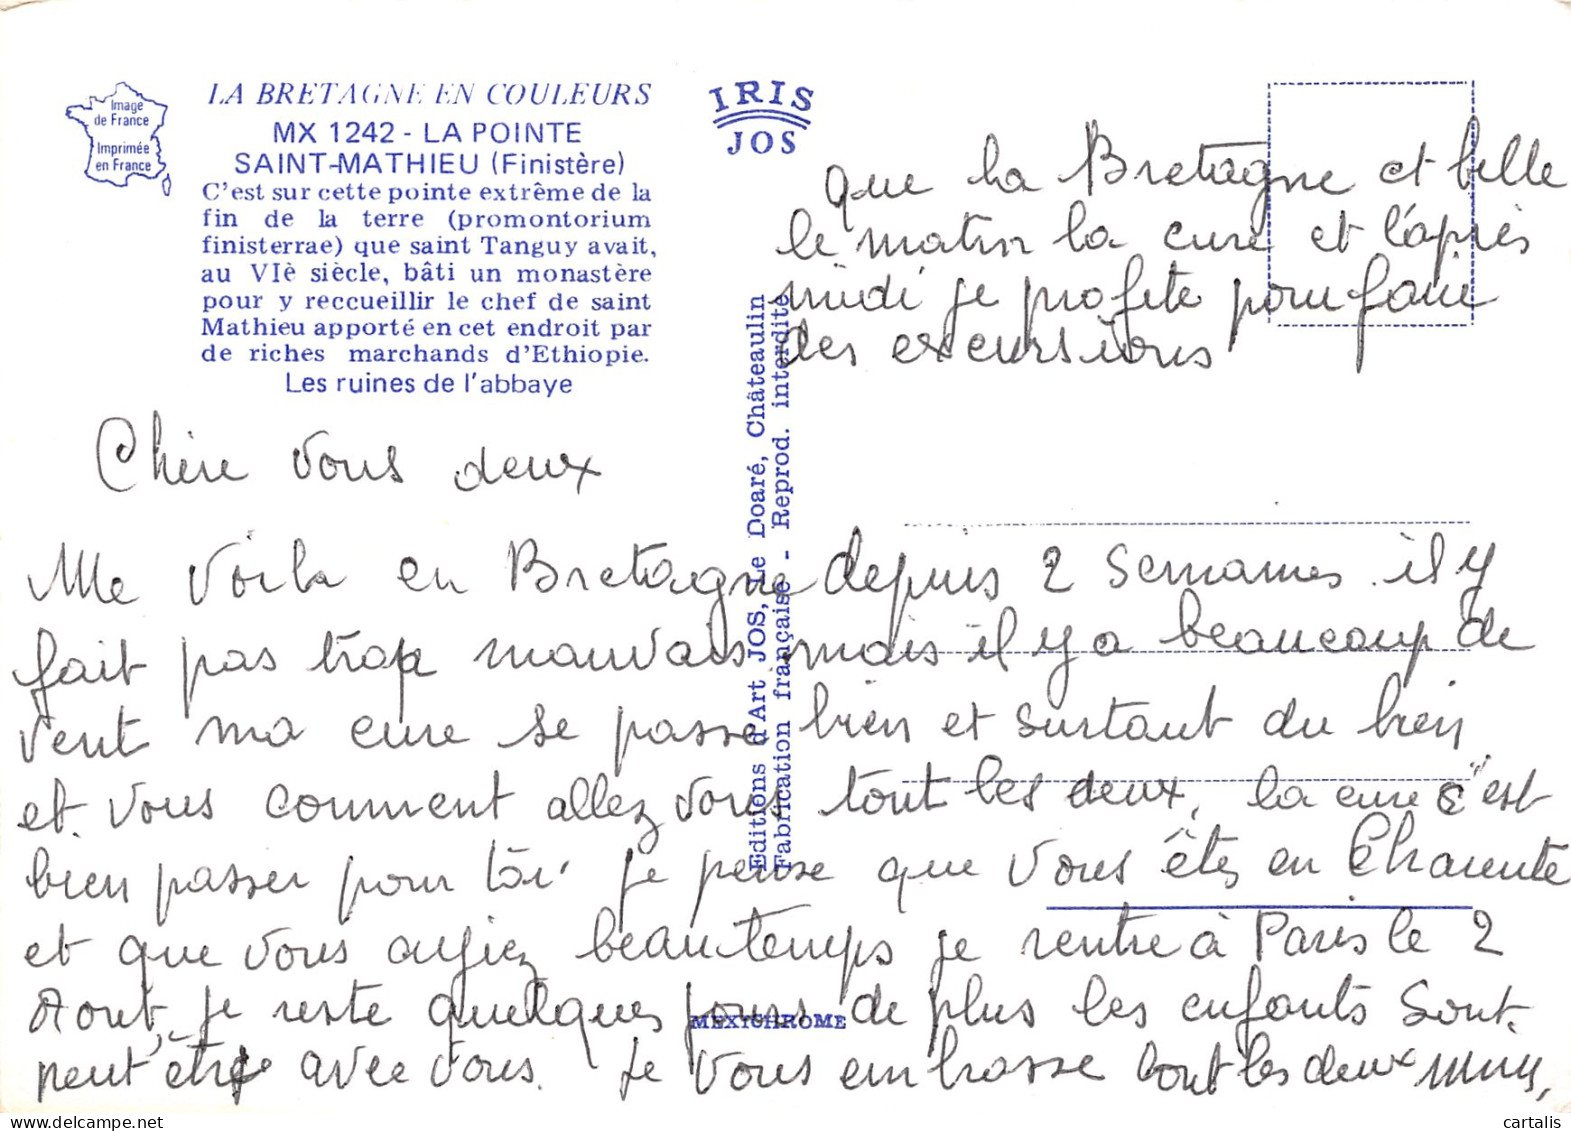 Image
de France
Imprimée
en France
LA BRETAGNE EN COULEURS
MX 1242 - LA POINTE
SAINT-MATHIEU (Finistère)
C'est sur cette pointe extrême de la
fin de la terre (promontorium
finisterrae) que saint Tanguy avait,
au VIè siècle, bâti un monastère
pour y reccueillir le chef de saint
Mathieu apporté en cet endroit par
de riches marchands d'Ethiopie.
Les ruines de l'abbaye
IRIS
JOS
Editions d'Art JOS, Le Doaré, Châteaulin
Fabrication française - Reprod. interdite
MEXICHROME
Chère vous deux
Me voila en Bretagne depuis 2 semaines il y
fait pas trop mauvais mais il y a beaucoup de
vent ma cure se passe bien et surtout du bien
et vous comment allez vous tout les deux, la cure c'est
bien passer pour toi je pense que vous êtes en Charente
et que vous ayiez beau temps je rentre à Paris le 2
Aout, je reste quelques jours de plus les enfants sont
peut être avec vous. Je vous embrasse tout les deux
que la Bretagne et belle
le matin la cure et l'après
midi je profite pour faire
des excursions
cartalis